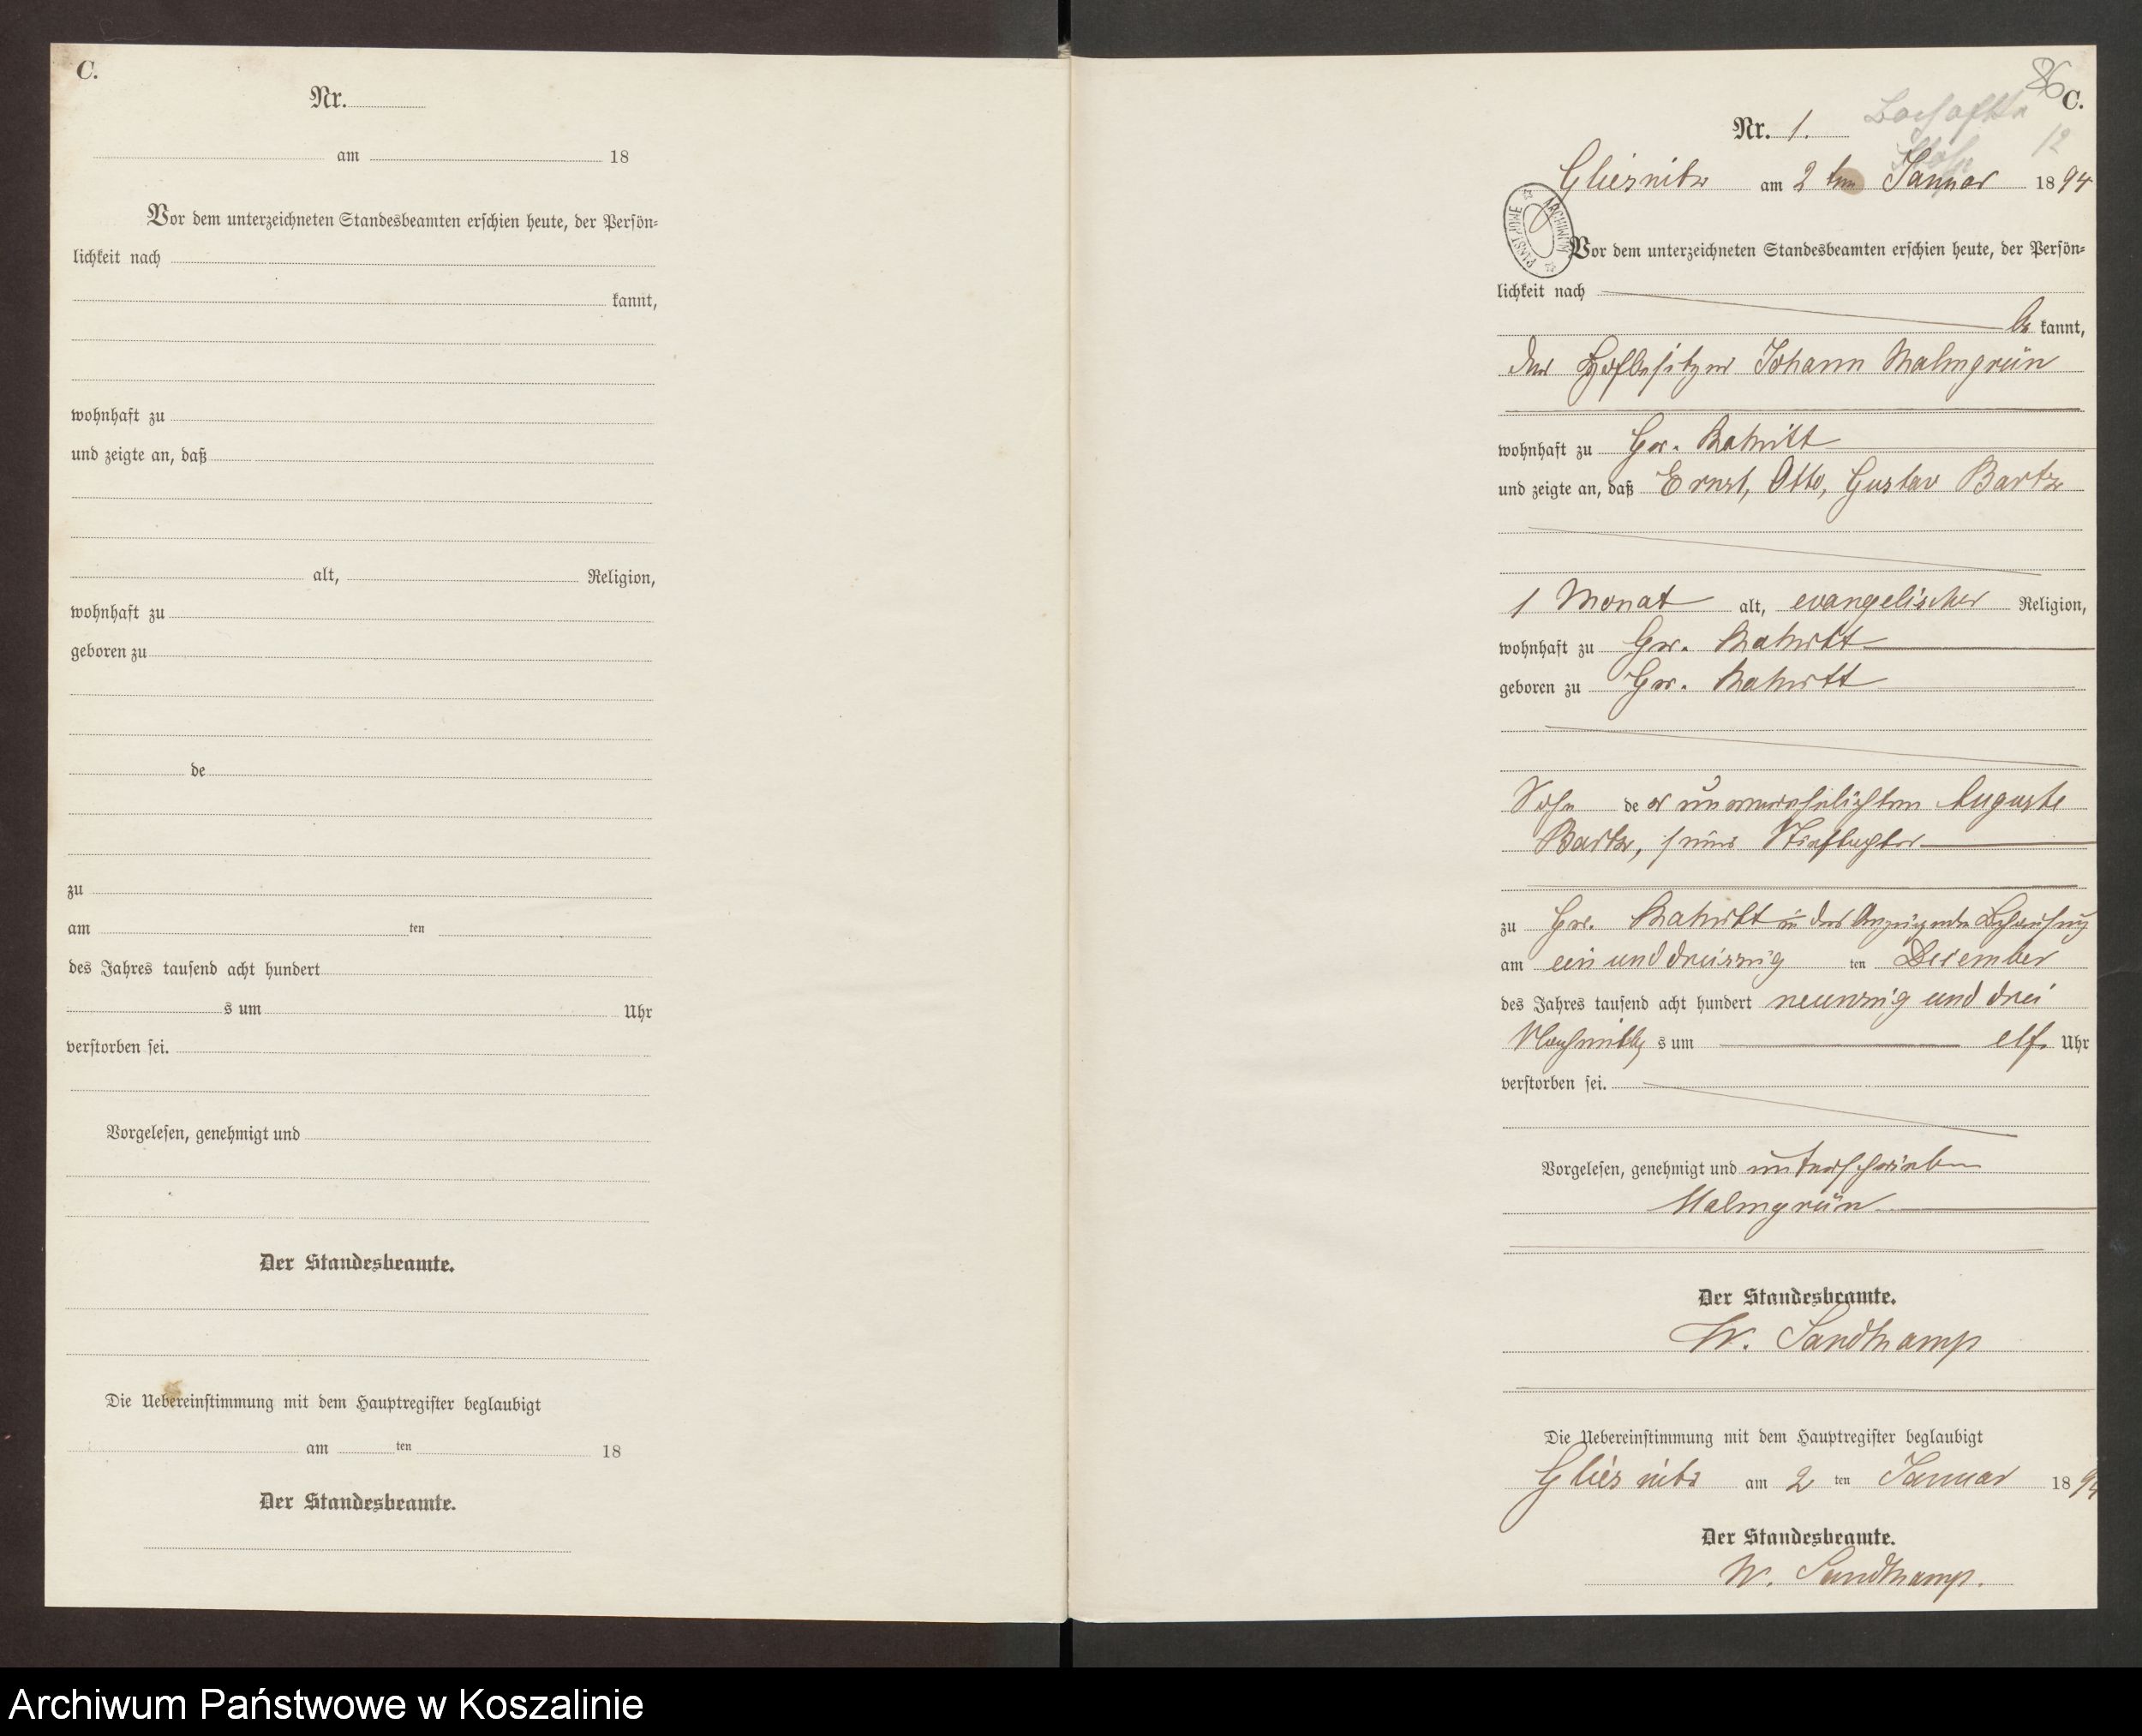 C.
Nr.
am 18
Vor dem unterzeichneten Standesbeamten erschien heute, der Persön=
lichkeit nach
kannt,
wohnhaft zu
und zeigte an, daß
alt, Religion,
wohnhaft zu
geboren zu
de
zu
am ten
des Jahres tausend acht hundert
s um Uhr
verstorben sei.
Vorgelesen, genehmigt und
Der Standesbeamte.
Die Uebereinstimmung mit dem Hauptregister beglaubigt
am ten 18
Der Standesbeamte.
C.
Nr. 1.
Gliesnitz am 2 ten Januar 1894
ARCHIWUM PAŃSTWOWE
Vor dem unterzeichneten Standesbeamten erschien heute, der Persön=
lichkeit nach
be kannt,
der Hofbesitzer Johann Malmgrün
wohnhaft zu Gr.
und zeigte an, daß Ernst, Otto, Gustav Bartz
1 Monat alt, evangelischer Religion,
wohnhaft zu Gr.
geboren zu Gr.
Sohn de r unverehelichten Auguste
Bartz, seiner Stieftochter
zu Gr. in des Anzeigenden Behausung
am ein und dreiszig ten Dezember
des Jahres tausend acht hundert neunzig und drei
Nachmittag s um elf Uhr
verstorben sei.
Vorgelesen, genehmigt und unterschrieben
Malmgrün
Der Standesbeamte.
W. Sandkamp
Die Uebereinstimmung mit dem Hauptregister beglaubigt
Gliesnitz am 2 ten Januar 1894
Der Standesbeamte.
W. Sandkamp.
Archiwum Państwowe w Koszalinie